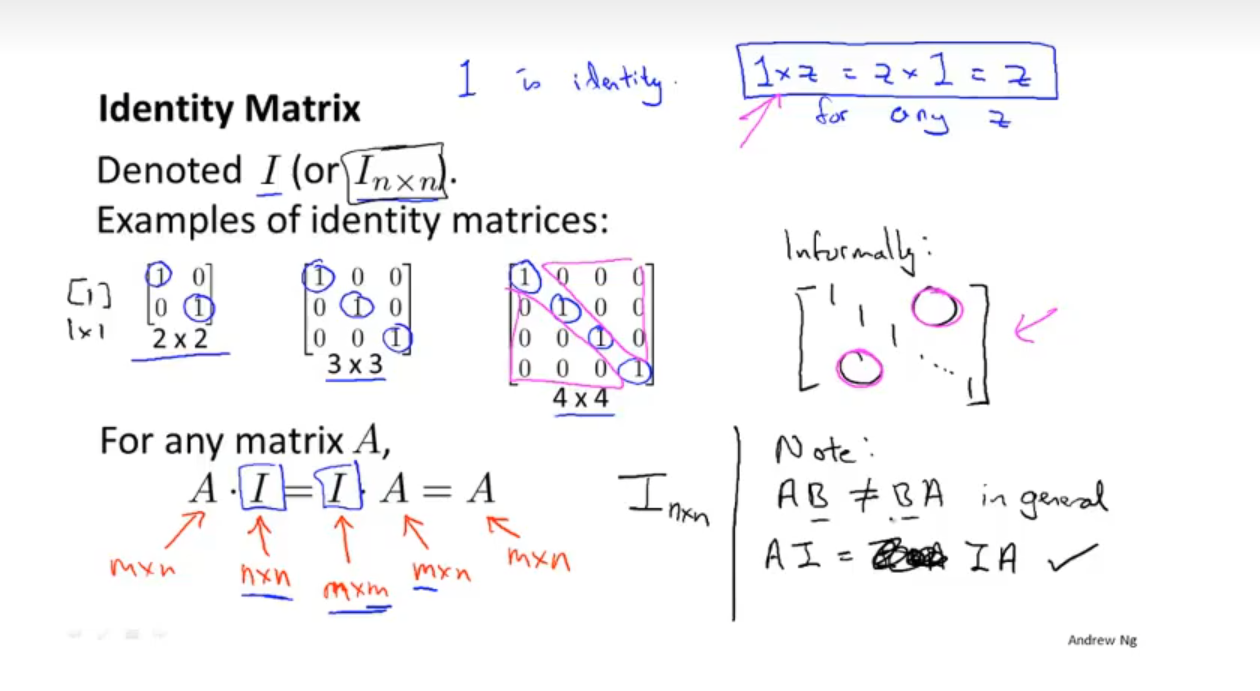 1 is identity.
1 × z = z × 1 = z
for any z
Identity Matrix
Denoted I (or I n×n).
Examples of identity matrices:
[1]
1x1
1 0
0 1
2 x 2
1 0 0
0 1 0
0 0 1
3 x 3
1 0 0 0
0 1 0 0
0 0 1 0
0 0 0 1
4 x 4
Informally:
1
1
1
...
1
For any matrix A,
A · I = I · A = A
m×n
n×n
m×m
m×n
m×n
I n×n
Note:
AB ≠ BA in general
AI = IA ✓
Andrew Ng